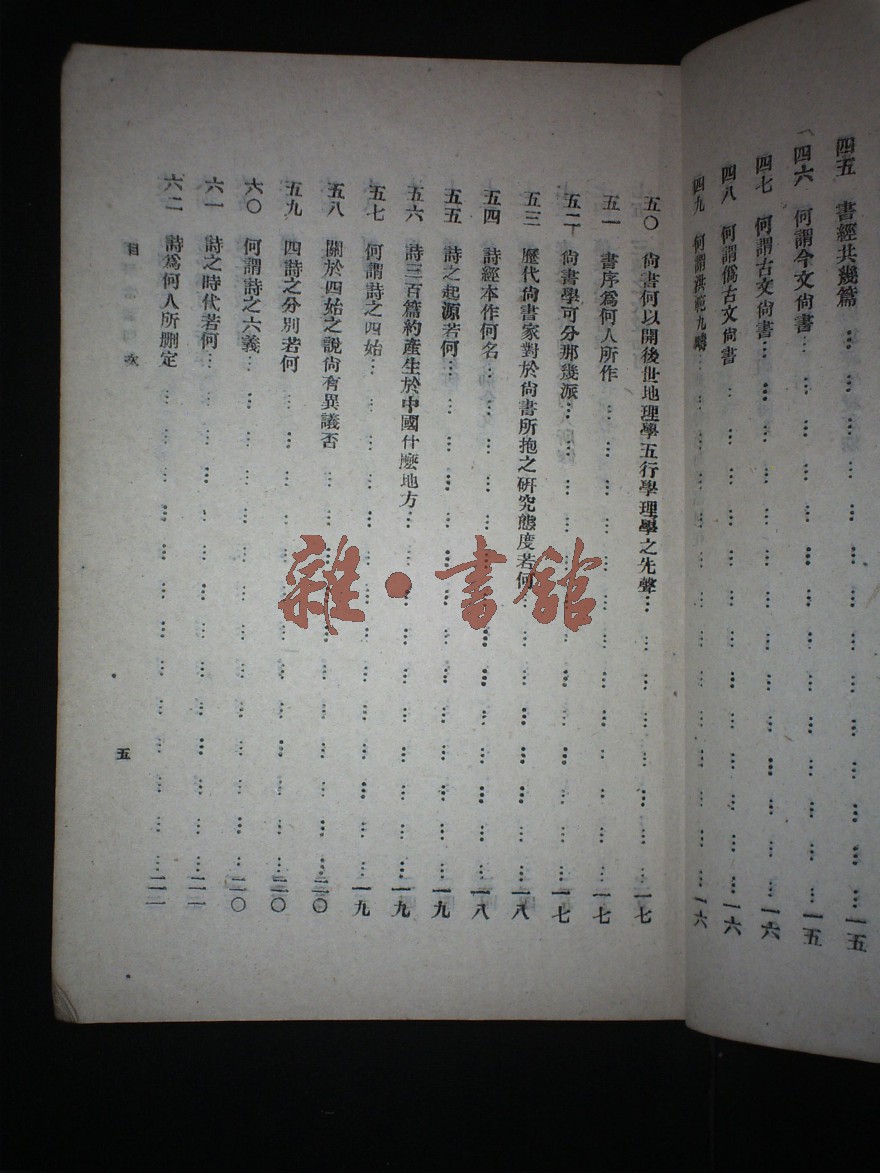 四五　書經共幾篇……一五
四六　何謂今文尙書……一五
四七　何謂古文尙書……一六
四八　何謂僞古文尙書……一六
四九　何謂洪範九疇……一六
五〇　尙書何以開後世地理學五行學理學之先聲……一七
五一　書序爲何人所作……一七
五二　尙書學可分那幾派……一七
五三　歷代尙書家對於尙書所抱之研究態度若何……一八
五四　詩經本作何名……一八
五五　詩之起源若何……一九
五六　詩三百篇約產生於中國什麽地方……一九
五七　何謂詩之四始……一九
五八　關於四始之說尙有異議否……二〇
五九　四詩之分別若何……二〇
六〇　何謂詩之六義……二〇
六一　詩之時代若何……二一
六二　詩爲何人所删定……二二
目次
五
雜·書館